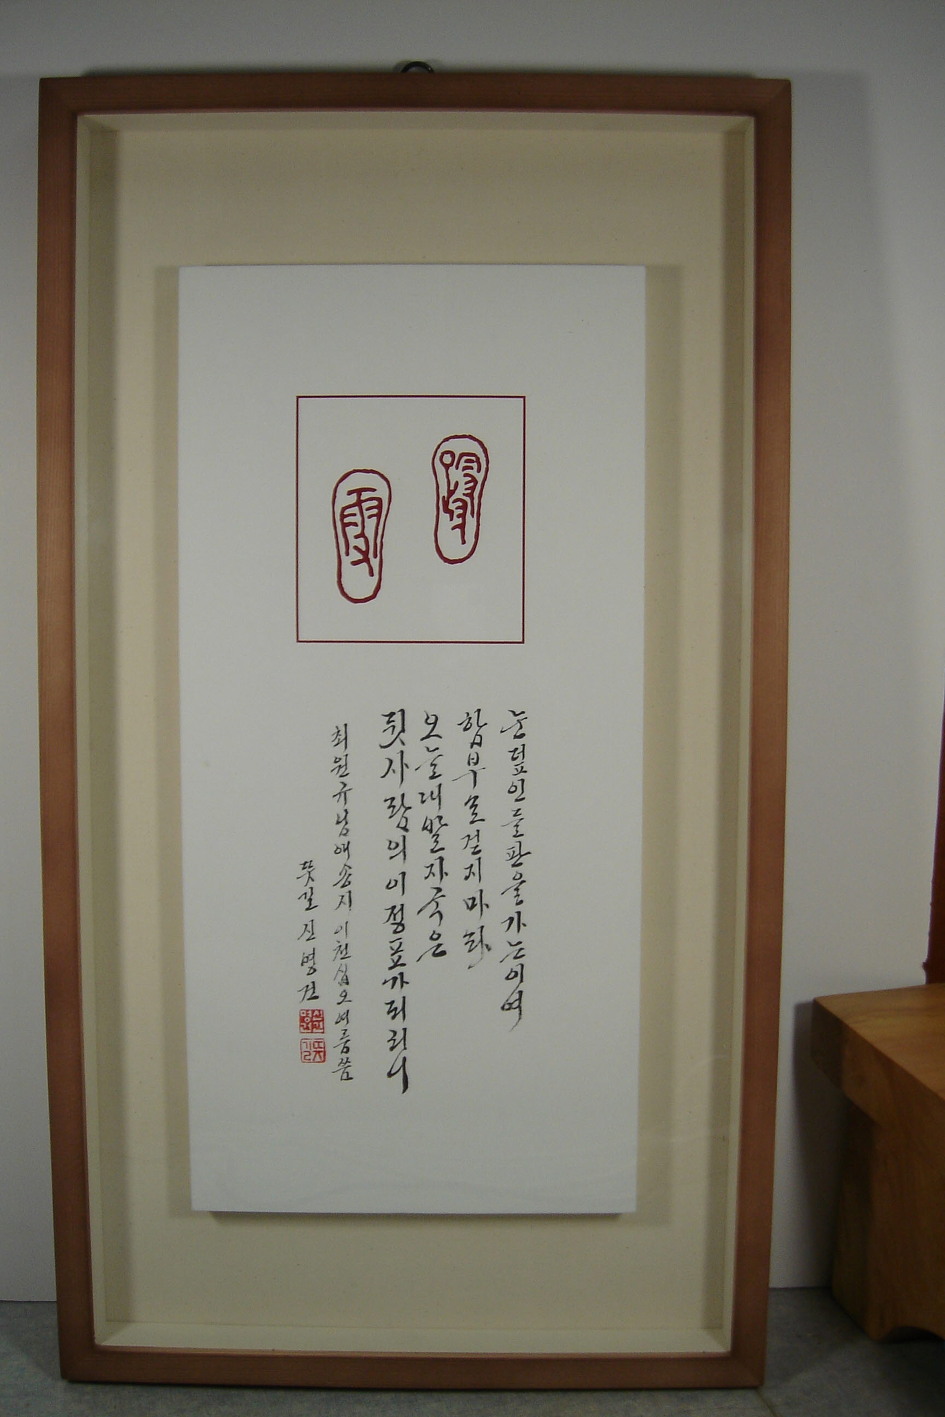 눈덮인들판을가는이여
함부로걷지마라
오늘내발자국은
뒷사람의이정표가되리니
최원규님애송시 이천십오여름씀
뜻길